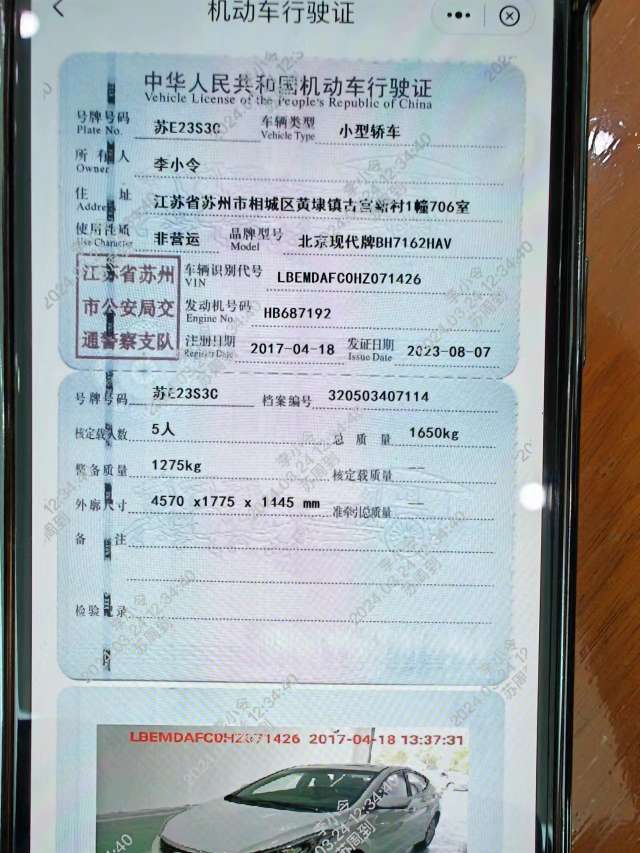 机动车行驶证
中华人民共和国机动车行驶证
Vehicle License of the People's Republic of China
号牌号码 苏E23S3C 车辆类型 小型轿车
Plate No. Vehicle Type
所有人 李小令
Owner
住址 江苏省苏州市相城区黄埭镇古宫新村1幢706室
Address
使用性质 非营运 品牌型号 北京现代牌BH7162HAV
Use Character Model
江苏省苏州
市公安局交
通警察支队
车辆识别代号 LBEMDAFC0HZ071426
VIN
发动机号码 HB687192
Engine No.
注册日期 2017-04-18 发证日期 2023-08-07
Register Date Issue Date
号牌号码 苏E23S3C 档案编号 320503407114
核定载人数 5人 总质量 1650kg
整备质量 1275kg 核定载质量 —
外廓尺寸 4570 x1775 x 1445 mm 准牵引总质量 —
备注
检验记录
LBEMDAFC0HZ071426 2017-04-18 13:37:31
李小令
2024.03.24-12:34:40
苏周到